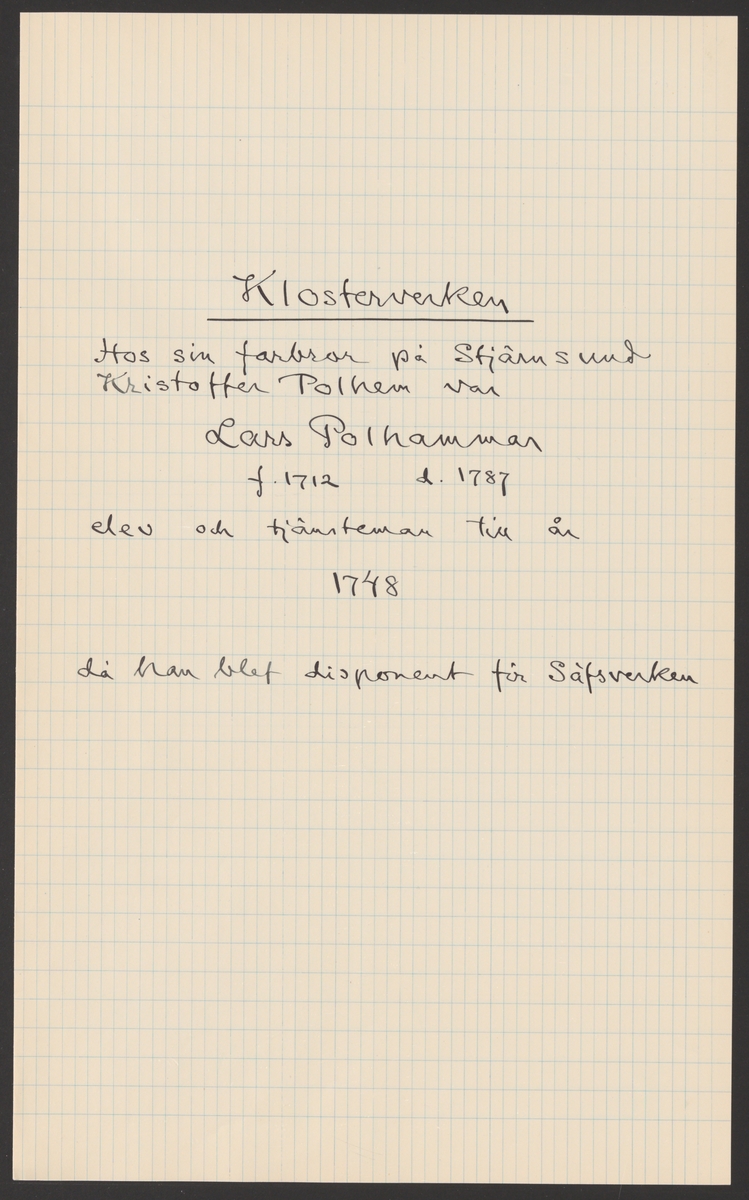 Klosterverken
Hos sin farbror på Stjärnsund
Kristoffer Polhem var
Lars Polhammar
f. 1712 d. 1787
elev och tjänsteman till år
1748
då han blef disponent för Säfsverken